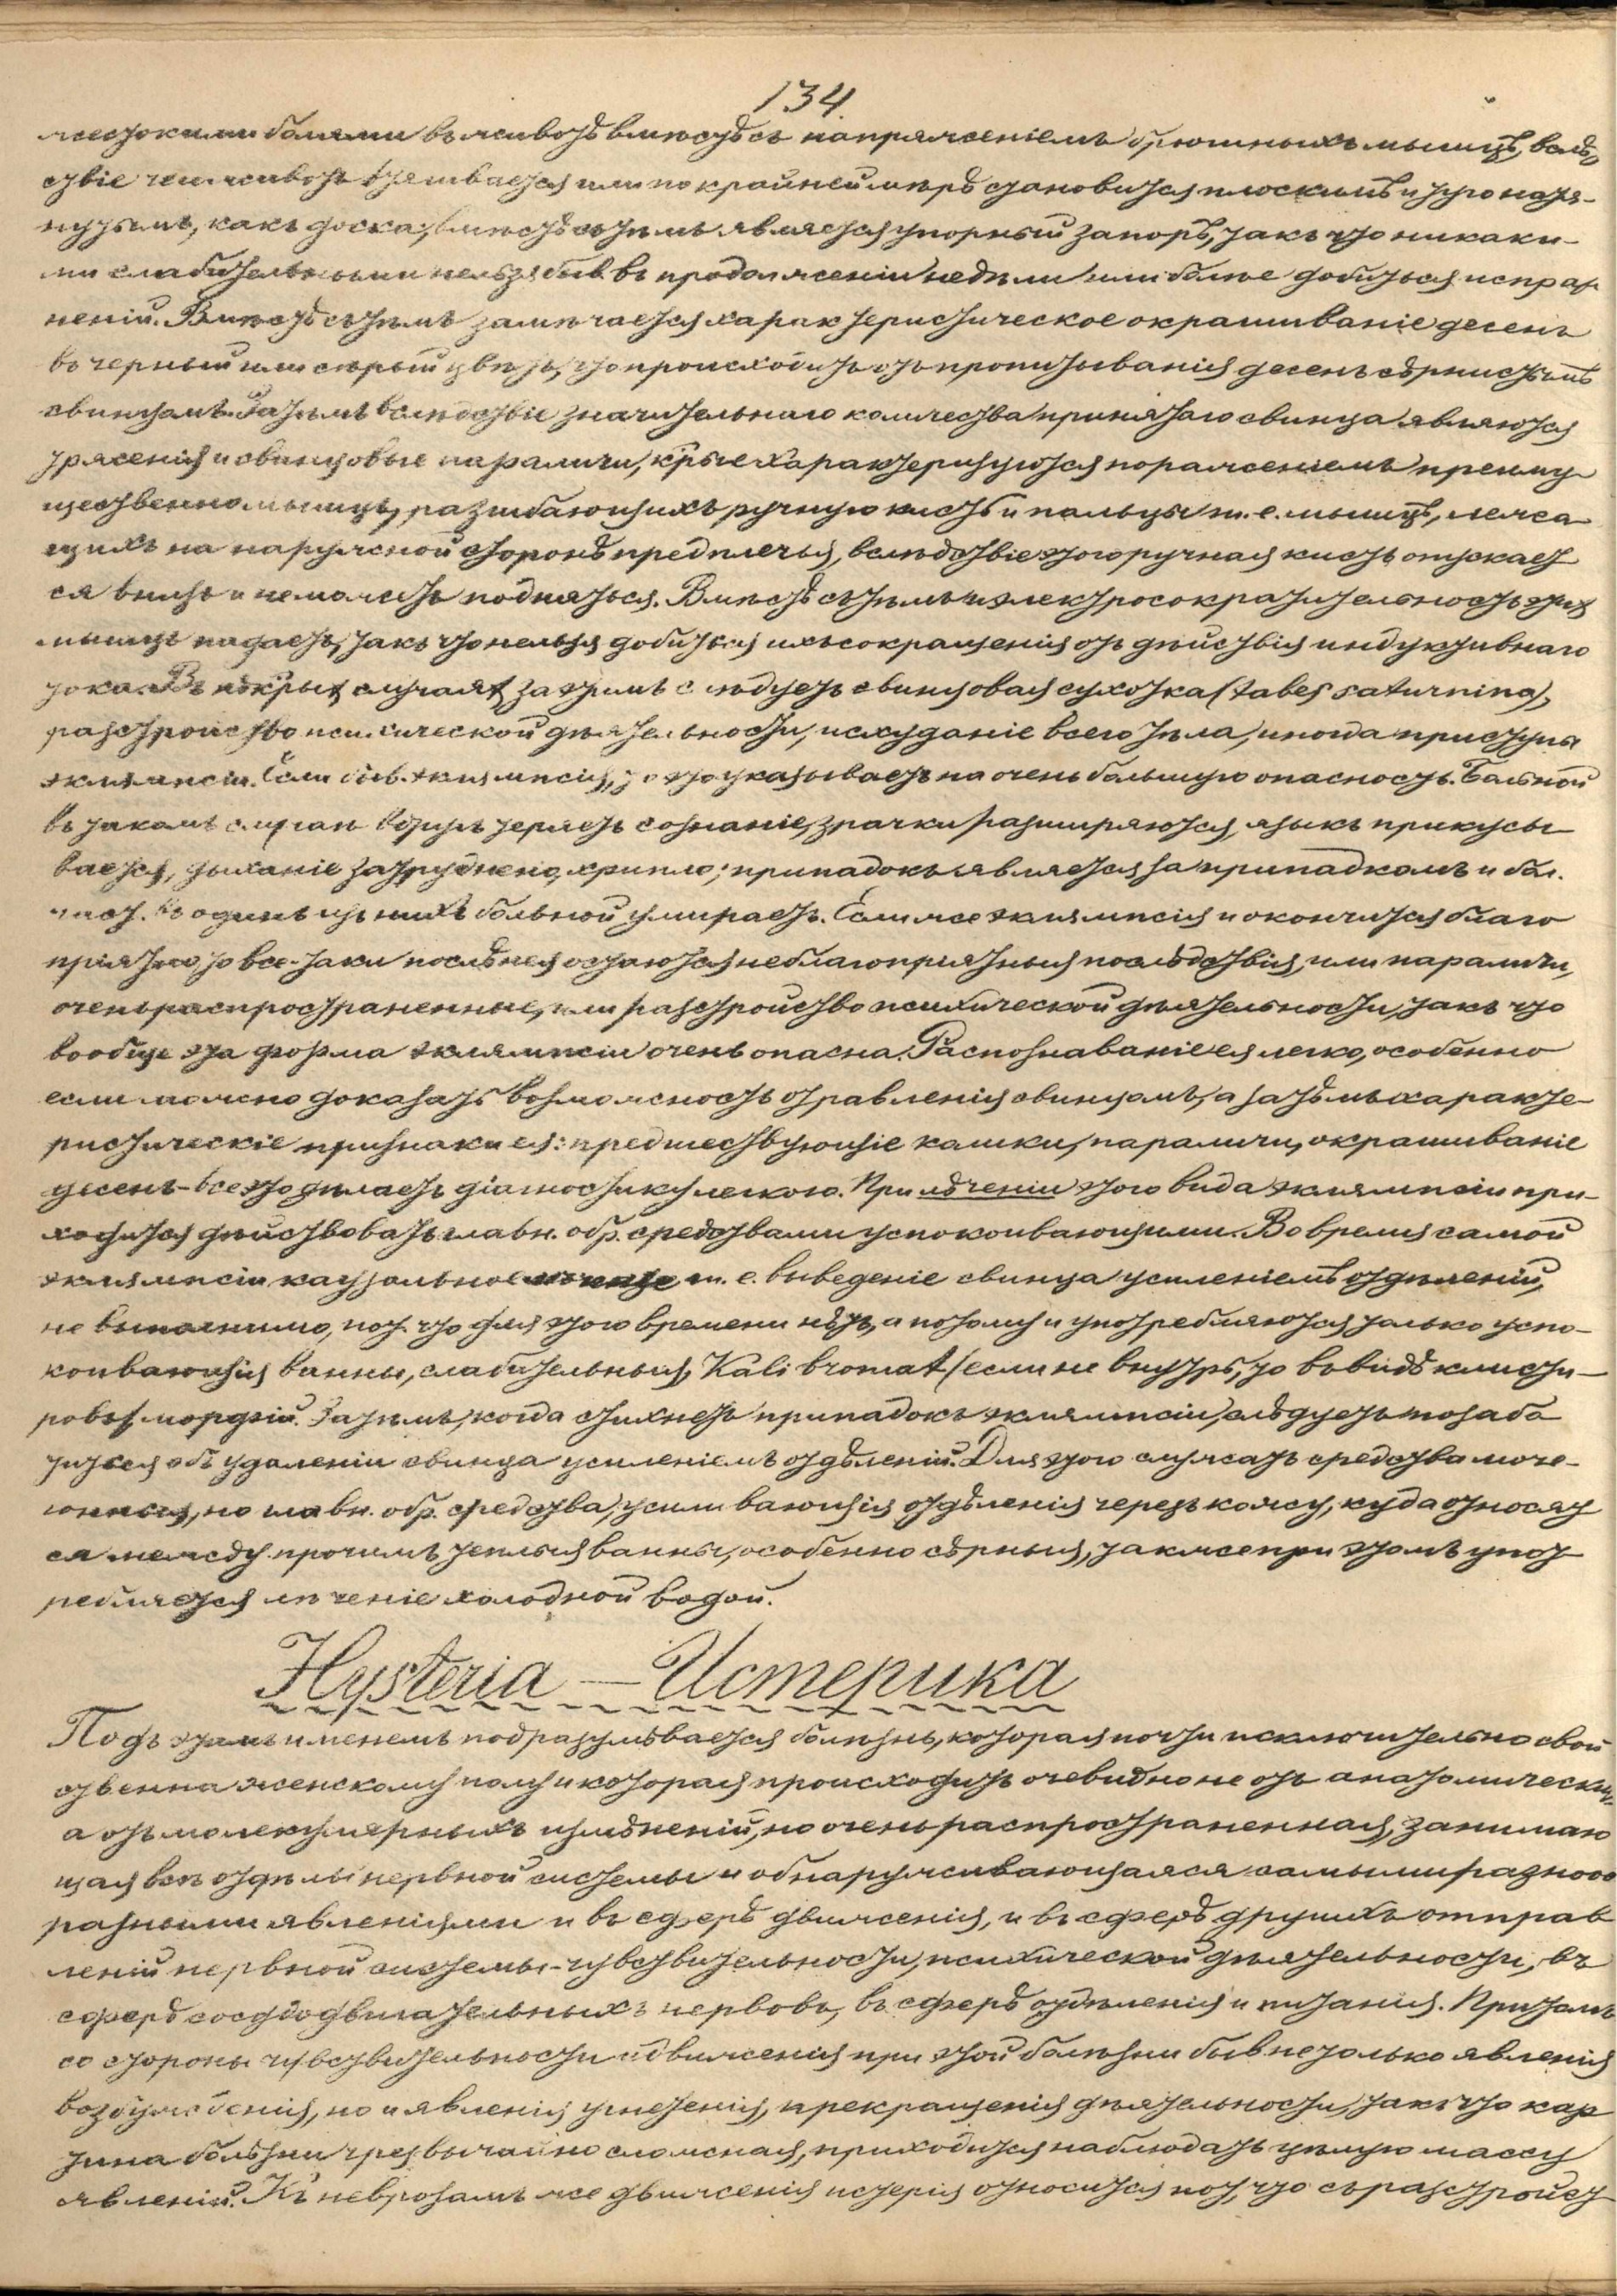 134.
жестокими болями въ животѣ вмѣстѣ съ напряженіемъ брюшныхъ мышцъ, вслѣд
ствіе чего животъ втягивается или по крайней мѣрѣ становится плоскимъ и туго натя-
нутымъ, какъ доска; вмѣстѣ съ тѣмъ является упорный запоръ, такъ что никаки-
ми слабительными нельзя бив. въ продолженіи недѣли или болѣе добиться испраж
неній. Вмѣстѣ съ тѣмъ замѣчается характеристическое окрашиваніе десенъ
въ черный или сѣрый цвѣтъ, что происходитъ отъ пропитыванія десенъ сѣрнистымъ
свинцомъ. Затѣмъ вслѣдствіе значительнаго количества принятаго свинца являются
трясенія и свинцовые параличи, к'рые характеризуются пораженіемъ преиму
щественно мышцъ, разгибающихъ ручную кисть и пальцы т. е. мышцъ, лежа
щихъ на наружной сторонѣ предплечья, вслѣдствіе этого ручная кисть опускает
ся внизъ и не можетъ подняться. Вмѣстѣ съ тѣмъ и электросократительность этих
мышцъ падаетъ, такъ что нельзя добиться ихъ сокращенія отъ дѣйствія индуктивнаго
тока. Въ нѣкрых случаях за этимъ слѣдуетъ свинцовая сухотка (tabes saturnina),
разстройство психической дѣятельности, исхуданіе всего тѣла, иногда приступы
эклямпсіи. Если бив. эклямпсія, то это указываетъ на очень большую опасность. Больной
въ такомъ случаѣ вдругъ теряетъ сознаніе, зрачки разширяются, языкъ прикусы
вается, дыханіе затруднено, хрипло; припадокъ является за припадкомъ и бол.
част. въ одинъ изъ нихъ больной умираетъ. Если же эклямпсія и окончится благо
пріятно, то все-таки послѣ нея остаются неблагопріятныя послѣдствія, или параличи,
очень распространенные, или разстройство психической дѣятельности, такъ что
вообще эта форма эклямпсіи очень опасна. Распознаваніе ея легко, особенно
если можно доказать возможность отравленія свинцомъ, а затѣмъ характе-
ристическіе признаки ея: предшествующіе колики, параличи, окрашиваніе
десенъ - все это дѣлаетъ діагностику легкою. При лѣченіи этого вида эклямпсіи при-
ходится дѣйствовать главн. обр. средствами успокоивающими. Во время самой
эклямпсіи каузальное т. е. выведеніе свинца усиленіемъ отдѣленій,
не выполнимо, пот. что для этого времени нѣтъ, а потому и употребляются только успо-
коивающія ванны, слабительныя, Kali bromat (если не внутрь, то въ видѣ клисти-
ровъ), морфій. Затѣмъ, когда стихнетъ припадокъ эклямпсіи, слѣдуетъ поза бо
титься объ удаленіи свинца усиленіемъ отдѣленій. Для этого служатъ средства моче-
гонныя, но главн. обр. средства, усиливающія отдѣленія черезъ кожу, куда относят
ся между прочимъ теплыя ванны, особенно сѣрныя, также при этомъ упот
ребляется лѣченіе холодной водой.
Hysteria — Истерика
Подъ этимъ именемъ подразумѣвается болѣзнь, которая почти исключительно свой
ственна женскому полу и которая происходитъ очевидно не отъ анатомических,
а отъ молекулярныхъ измѣненій, но очень распространенная, занимаю
щая всѣ отдѣлы нервной системы и обнаруживающаяся самыми разнооб
разными явленіями и въ сферѣ движенія, и въ сферѣ другихъ отправ
леній нервной системы - чувствительности, психической дѣятельности, въ
сферѣ сосудодвигательныхъ нервовъ, въ сферѣ отдѣленія и питанія. При томъ
со стороны чувствительности и движенія при этой болѣзни бив. не только явленія
возбужденія, но и явленія угнетенія, прекращенія дѣятельности, такъ что кар
тина болѣзни чрезвычайно сложная, приходится наблюдать цѣлую массу
явленій. Къ неврозамъ же движенія истерія относится пот, что съ разстройст